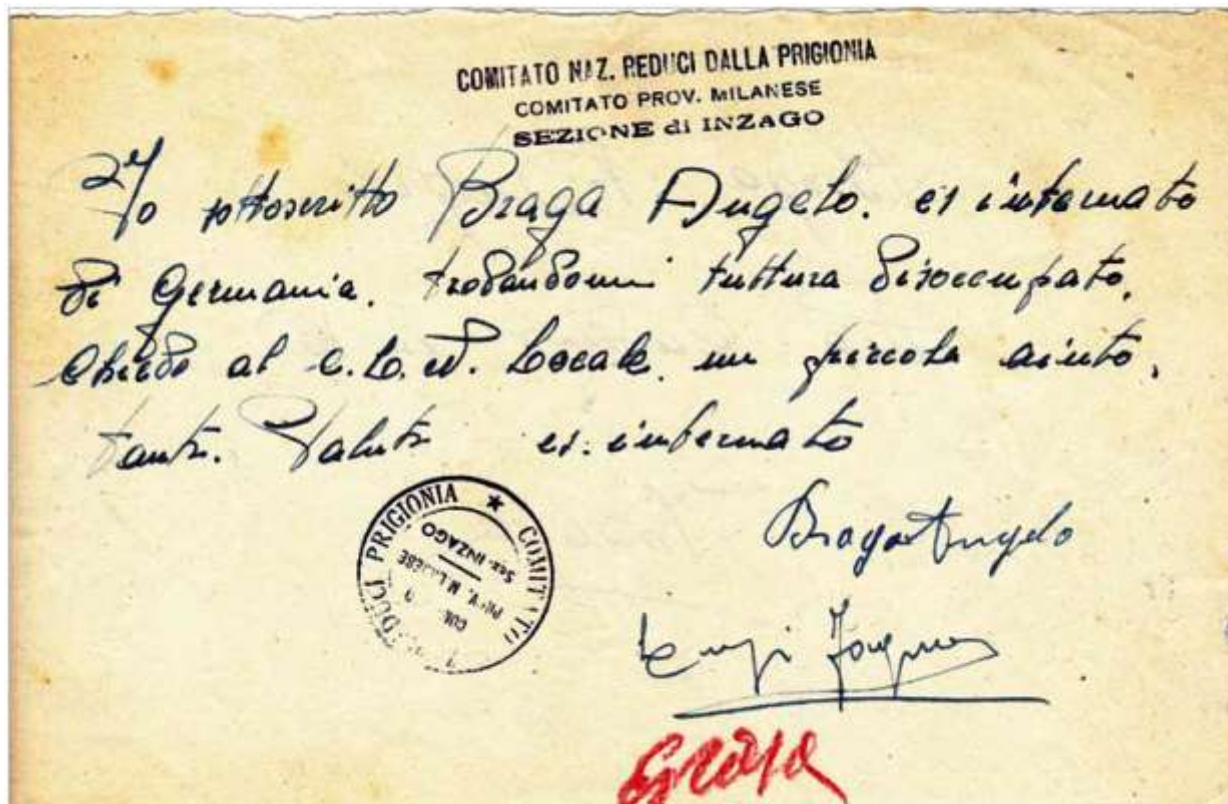 COMITATO NAZ. REDUCI DALLA PRIGIONIA
COMITATO PROV. MILANESE
SEZIONE di INZAGO
Io sottoscritto Braga Angelo. ex internato
di Germania. trovandomi tuttura disoccupato.
Chiedo al C.L.N. Locale. un piccolo aiuto.
tanti. Saluti ex. internato
COMITATO
PRIGIONIA
Sez. INZAGO
Braga Angelo
Luigi